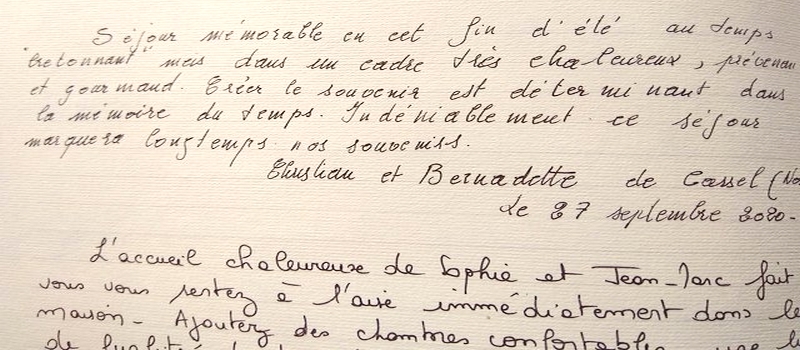 Séjour mémorable en cet fin d'été au temps
"bretonnant" mais dans un cadre très chaleureux, prévenan
et gourmand. Créer le souvenir est déterminant dans
la mémoire du temps. Indéniablement ce séjour
marquera longtemps nos souvenirs.
Christian et Bernadette de Cassel (No
Le 27 septembre 2020-
L'accueil chaleureuse de Sophie et Jean-Marc fait
vous vous sentez à l'aise immédiatement dans le
maison- Ajoutez des chambres confortables, une
de